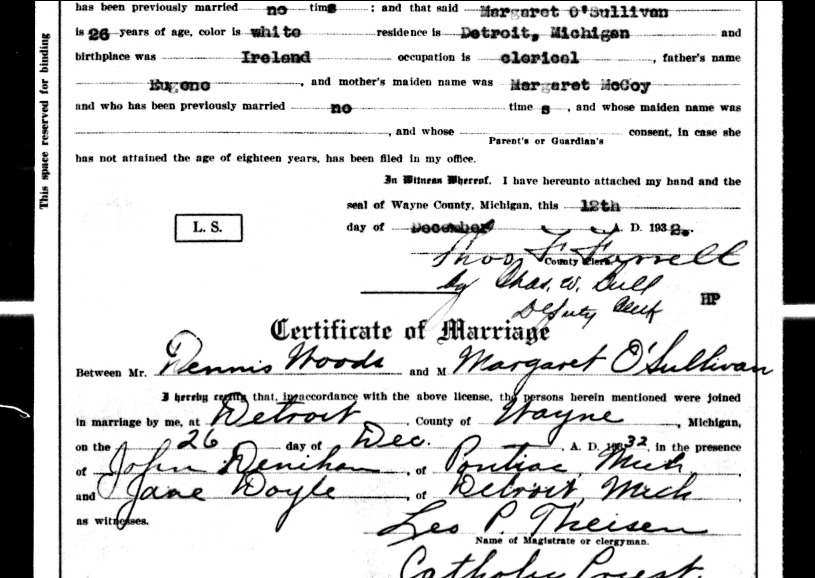 has been previously married no times ; and that said Margaret O'Sullivan
is 26 years of age, color is white residence is Detroit, Michigan and
birthplace was Ireland occupation is clerical , father's name
Eugene , and mother's maiden name was Margaret McCoy
and who has been previously married no time s , and whose maiden name was
, and whose consent, in case she
Parent's or Guardian's
has not attained the age of eighteen years, has been filed in my office.
In Witness Whereof, I have hereunto attached my hand and the
seal of Wayne County, Michigan, this 12th
day of December A. D. 1932.
L. S.
Thos F Farrell
County Clerk.
by Chas. W. Bull
Deputy Clerk
HP
This space reserved for binding
Certificate of Marriage
Between Mr. Dennis Woods and M Margaret O'Sullivan
I hereby certify that, in accordance with the above license, the persons herein mentioned were joined
in marriage by me, at Detroit , County of Wayne , Michigan,
on the 26 day of Dec. , A. D. 1932, in the presence
of John Denihan , of Pontiac, Mich ,
and Jane Doyle , of Detroit, Mich ,
as witnesses.
Leo P. Theisen
Name of Magistrate or clergyman.
Catholic Priest.